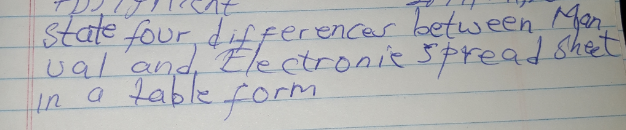 State four differences between Man
ual and Electronic spread sheet
in a table form